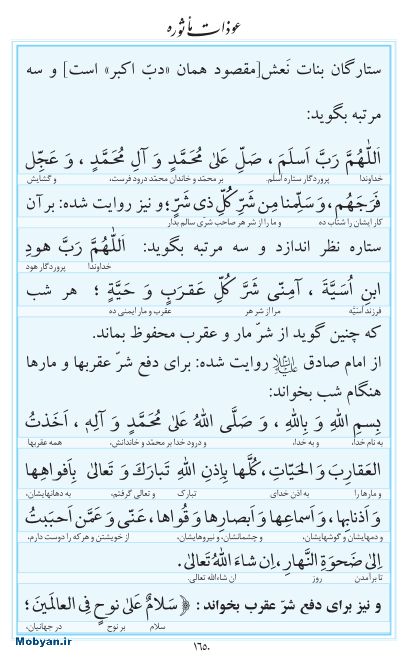 عوذات مأثوره
ستارگان بنات نَعش[مقصود همان «دبّ اکبر» است] و سه
مرتبه بگوید:
اَللّٰهُمَّ رَبَّ اَسلَمَ، صَلِّ عَلیٰ مُحَمَّدٍ وَ آلِ مُحَمَّدٍ، وَ عَجِّل
خداوندا پروردگار ستاره اسلم. بر محمّد و خاندان محمّد درود فرست، و گشایش
فَرَجَهُم، وَ سَلِّمنا مِن شَرِّ کُلِّ ذی شَرٍّ؛ و نیز روایت شده: بر آن
کار ایشان را شتاب ده و ما را از شر هر صاحب شرّی سالم بدار
ستاره نظر اندازد و سه مرتبه بگوید: اَللّٰهُمَّ رَبَّ هودِ
خداوندا پروردگار هود
ابنِ اُسَیَّةَ، آمِنّی شَرَّ کُلِّ عَقرَبٍ وَ حَیَّةٍ؛ هر شب
فرزند اسیّه مرا از شر هر عقرب و مار ایمنی ده
که چنین گوید از شرّ مار و عقرب محفوظ بماند.
از امام صادق علیه‌السلام روایت شده: برای دفع شرّ عقربها و مارها
هنگام شب بخواند:
بِسمِ اللهِ وَ بِاللهِ، وَ صَلَّی اللهُ عَلیٰ مُحَمَّدٍ وَ آلِهٖ، اَخَذتُ
به نام خدا، و به خدا، و درود خدا بر محمّد و خاندانش، همه عقربها
العَقارِبَ وَ الحَیّاتِ، کُلَّها بِاِذنِ اللهِ تَبارَکَ وَ تَعالیٰ بِاَفواهِها
و مارها را به اذن خدای تبارک و تعالی گرفتم، به دهانهایشان،
وَ اَذنابِها، وَ اَسماعِها وَ اَبصارِها وَ قُواها، عَنّی وَ عَمَّن اَحبَبتُ
و دمهایشان و گوشهایشان، و چشمانشان، و نیروهایشان، از خویشتن و هر که را دوست دارم،
اِلیٰ ضَحوَةِ النَّهارِ، اِن شاءَ اللهُ تَعالیٰ.
تا برآمدن روز ان شاءالله تعالی.
و نیز برای دفع شرّ عقرب بخواند: ﴿سَلامٌ عَلیٰ نوحٍ فِی العالَمینَ؛
سلام بر نوح در جهانیان،
۱۶۵۰
Mobyan.ir